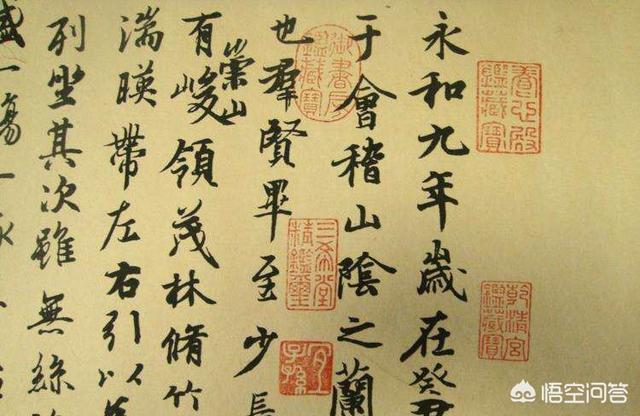 養心殿鑑藏寶
乾清宮鑑藏寶
永和九年歲在癸
于會稽山陰之蘭
御書房鑑藏寶
也羣賢畢至少長
三希堂精鑑璽
宜子孫
有崇山峻領茂林脩竹
湍暎帶左右引以
列坐其次雖無絲
盛一觴一詠
悟空问答